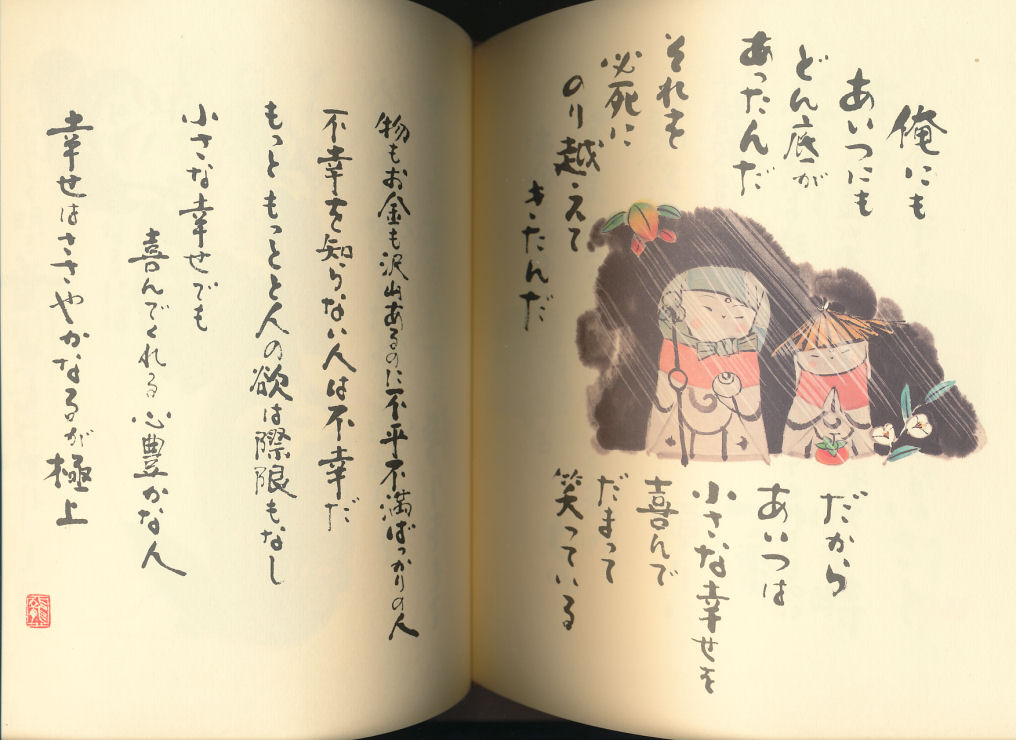 俺にも
あいつにも
どん底が
あったんだ
それを
必死に
のり越えて
きたんだ
だから
あいつは
小さな幸せを
喜んで
だまって
笑っている
物もお金も沢山あるのに不平不満ばっかりの人
不幸を知らない人は不幸だ
もっともっとと人の欲は際限もなし
小さな幸せでも
喜んでくれる心豊かな人
幸せはささやかなるが極上